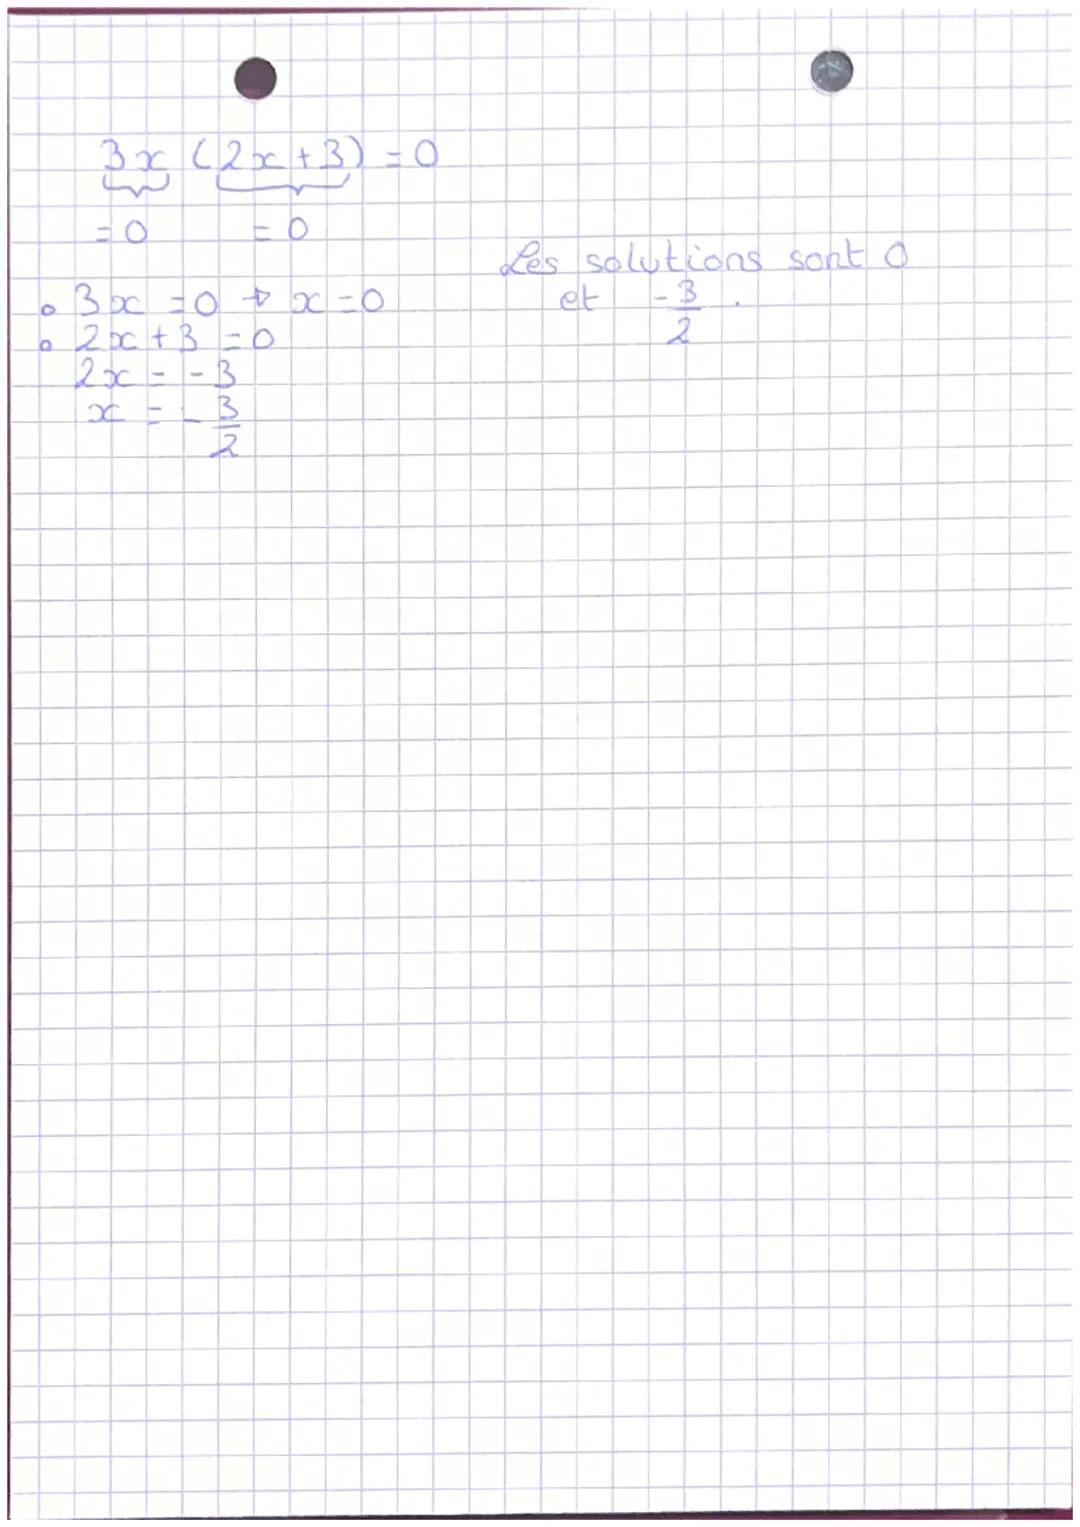 3x (2x+3) = 0
= 0 = 0
• 3x = 0 → x = 0
• 2x + 3 = 0
2x = - 3
x = - 3/2
Les solutions sont 0
et - 3/2 .